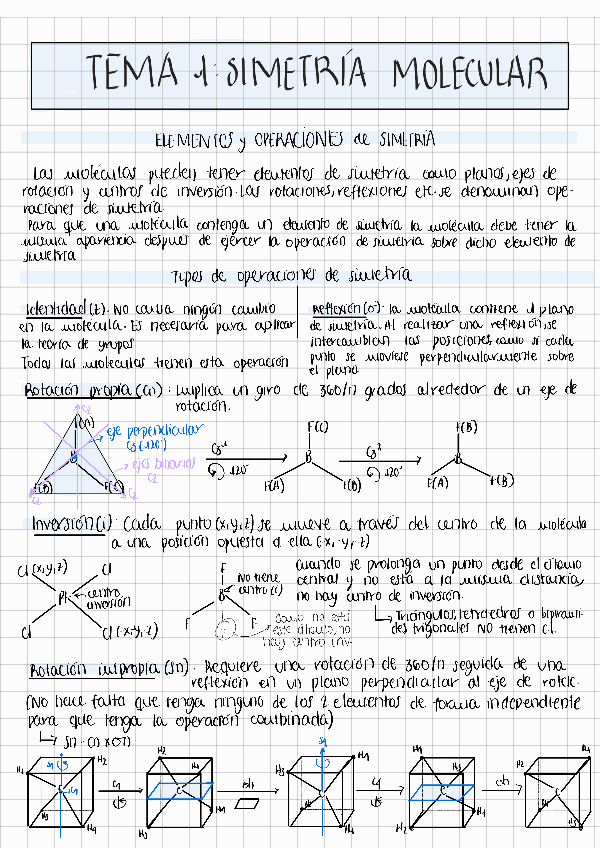 TEMA 1: SIMETRÍA MOLECULAR
ELEMENTOS y OPERACIONES de SIMETRIA
Las moléculas pueden tener elementos de simetría como planos, ejes de
rotación y centros de inversión. Las rotaciones, reflexiones etc. se denominan ope-
raciones de simetría.
Para que una molécula contenga un elemento de simetría la molécula debe tener la
misma apariencia despues de ejercer la operación de simetría sobre dicho elemento de
simetría
Tipos de operaciones de simetría
Identidad (E). No causa ningún cambio
en la molécula. Es necesaria para aplicar
la teoría de grupos
Todas las moleculas tienen esta operación
Reflexión (σ): la molécula contiene el plano
de simetría. Al realizar una reflexión, se
intercambian las posiciones, como si cada
punto se moviese perpendicularmente sobre
el plano
Rotación propia (Cn): Implica un giro de 360/n grados alrededor de un eje de
rotación.
C2
F(A)
eje perpendicular
C3 (120°)
B
ejes binarios
C2
F(B)
F(C)
C2
C2
C3¹
120°
F(C)
B
F(A)
F(B)
C3²
120°
F(B)
B
F(A)
F(B)
Inversión (i): Cada punto (x,y,z) se mueve a través del centro de la molécula
a una posición opuesta a ella (-x,-y,-z)
Cl (x,y,z)
Cl
Pt
centro
inversión
Cl
Cl (-x,-y,-z)
F
No tiene
centro (i)
B
F
F
como no está
este átomo, no
hay centro inv.
Cuando se prolonga un punto desde el átomo
central y no está a la misma distancia,
no hay centro de inversión.
Triángulos, tetraedros o bipirami-
des trigonales NO tienen c.i.
Rotación impropia (Sn): Requiere una rotación de 360/n seguida de una
reflexión en un plano perpendicular al eje de rotac.
(No hace falta que tenga ninguno de los 2 elementos de forma independiente
para que tenga la operación combinada)
Sn = Cn x σh
S4
C4
H1
H2
C
H3
H4
C4
H2
H1
C
H3
H4
σh
S4
H3
H1
C
H2
H4
C4
H1
H3
C
H2
H4
σh
H1
H2
C
H3
H4